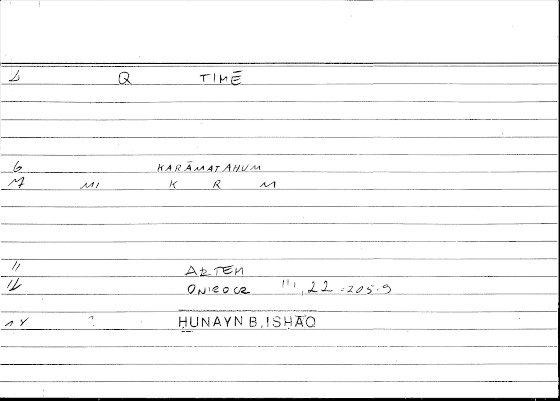 Q TIMĒ
6 KARĀMATAHUM
M MI K R M
11 ARTEM
12 ONIROCR III, 22 = 205.9
14 ? HUNAYN B. ISHĀQ